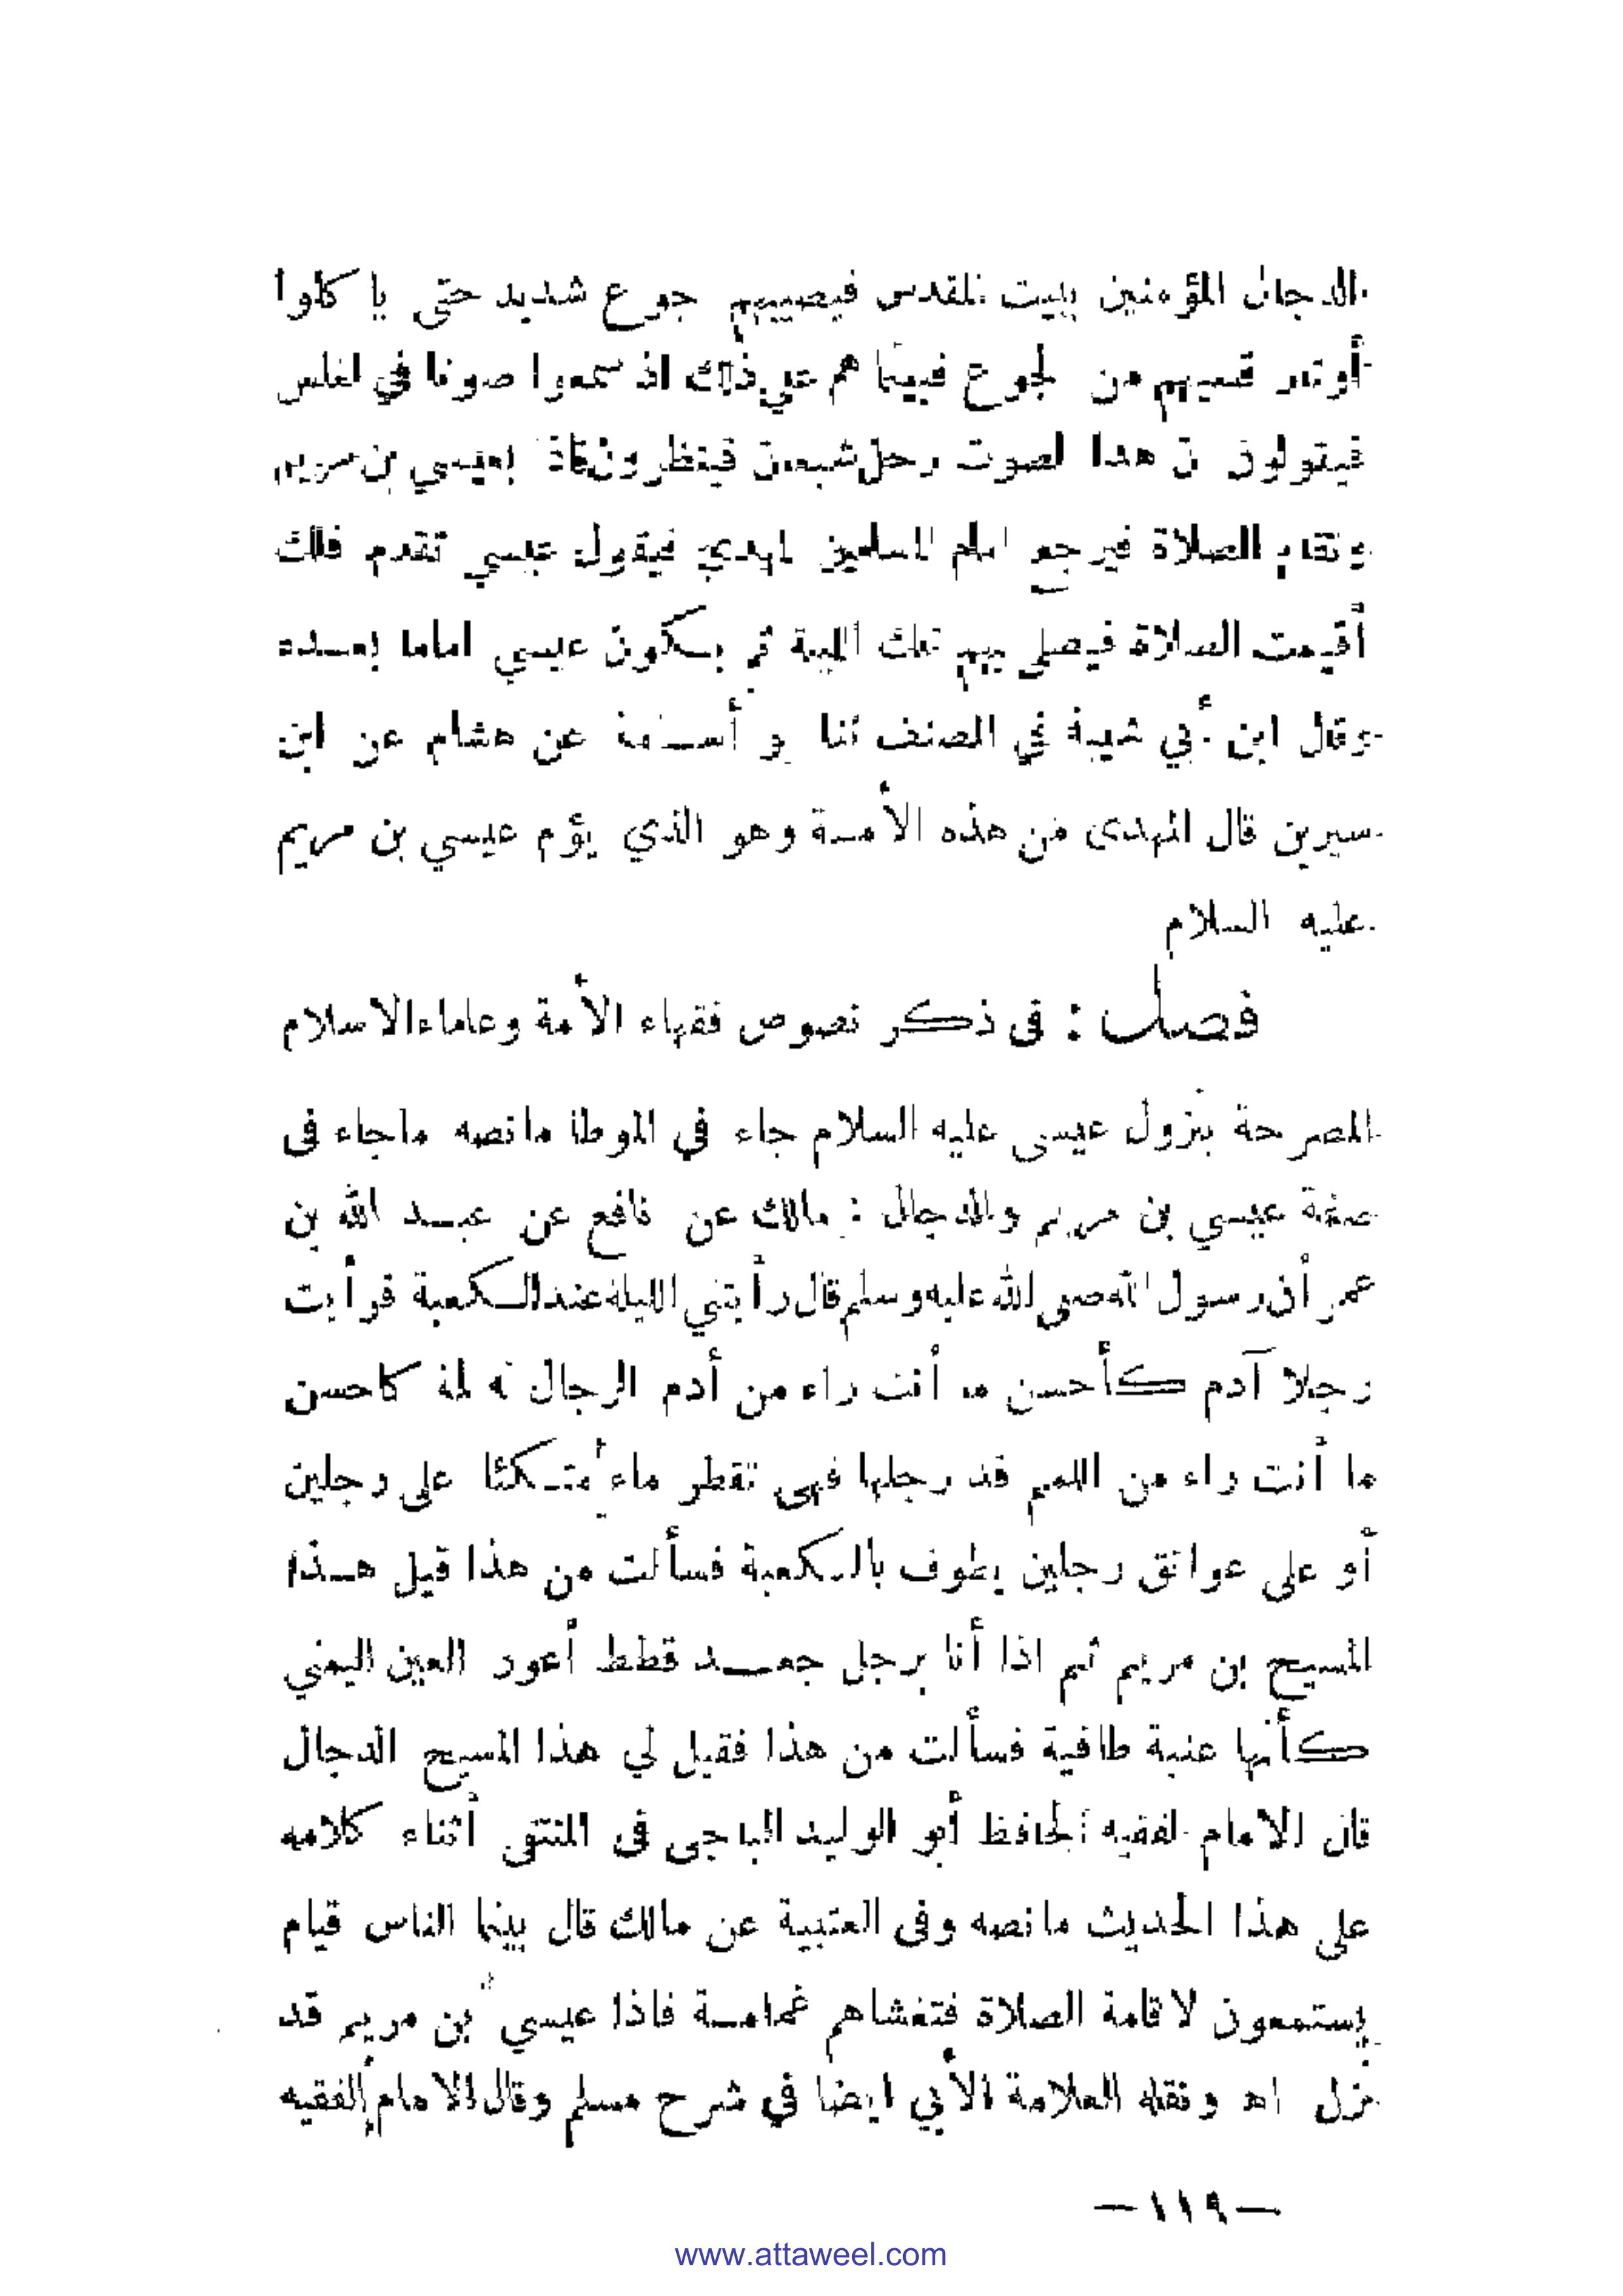 الدجال المؤمنين ببيت المقدس فيصيبهم جوع شديد حتى يا كلوا
أوتار قسيهم من الجوع فبينما هم على ذلك اذ سمعوا صوتا في الغلس
فيقولون ان هذا لصوت رجل شبعان فينظرون فاذا بعيسي بن مريم
وتقام الصلاة فيرجع امام المسلمين المهدي فيقول عيسي تقدم فلك
أقيمت الصلاة فيصلى بهم تلك الليلة ثم يكون عيسي اماما بعده
وقال ابن أبي شيبة في المصنف ثنا أبو أسامة عن هشام عن ابن
سيرين قال المهدى من هذه الأمة وهو الذي يؤم عيسي بن مريم
عليه السلام
فصل : فى ذكر نصوص فقهاء الأمة وعلماء الاسلام
المصرحة بنزول عيسى عليه السلام جاء في الموطأ مانصه ماجاء فى
صفة عيسي بن مريم والدجال : مالك عن نافع عن عبد الله بن
عمر أن رسول الله صلى الله عليه وسلم قال رأيتني الليلة عند الكعبة فرأيت
رجلا آدم كأحسن ما أنت راء من أدم الرجال له لمة كاحسن
ما أنت راء من اللمم قد رجلها فهى تقطر ماء متكئا على رجلين
أو على عواتق رجلين يطوف بالكعبة فسألت من هذا قيل هذا
المسيح بن مريم ثم اذا أنا برجل جعد قطط أعور العين اليمني
كأنها عنبة طافية فسألت من هذا فقيل لي هذا المسيح الدجال
قال الامام الفقيه الحافظ أبو الوليد الباجى فى المنتقى أثناء كلامه
على هذا الحديث مانصه وفى العتبية عن مالك قال بينما الناس قيام
يستمعون لاقامة الصلاة فتغشاهم غمامة فاذا عيسي بن مريم قد
نزل اه ونقله العلامة الأبي ايضا في شرح مسلم وقال الامام الفقيه
— ١١٩ —
www.attaweel.com